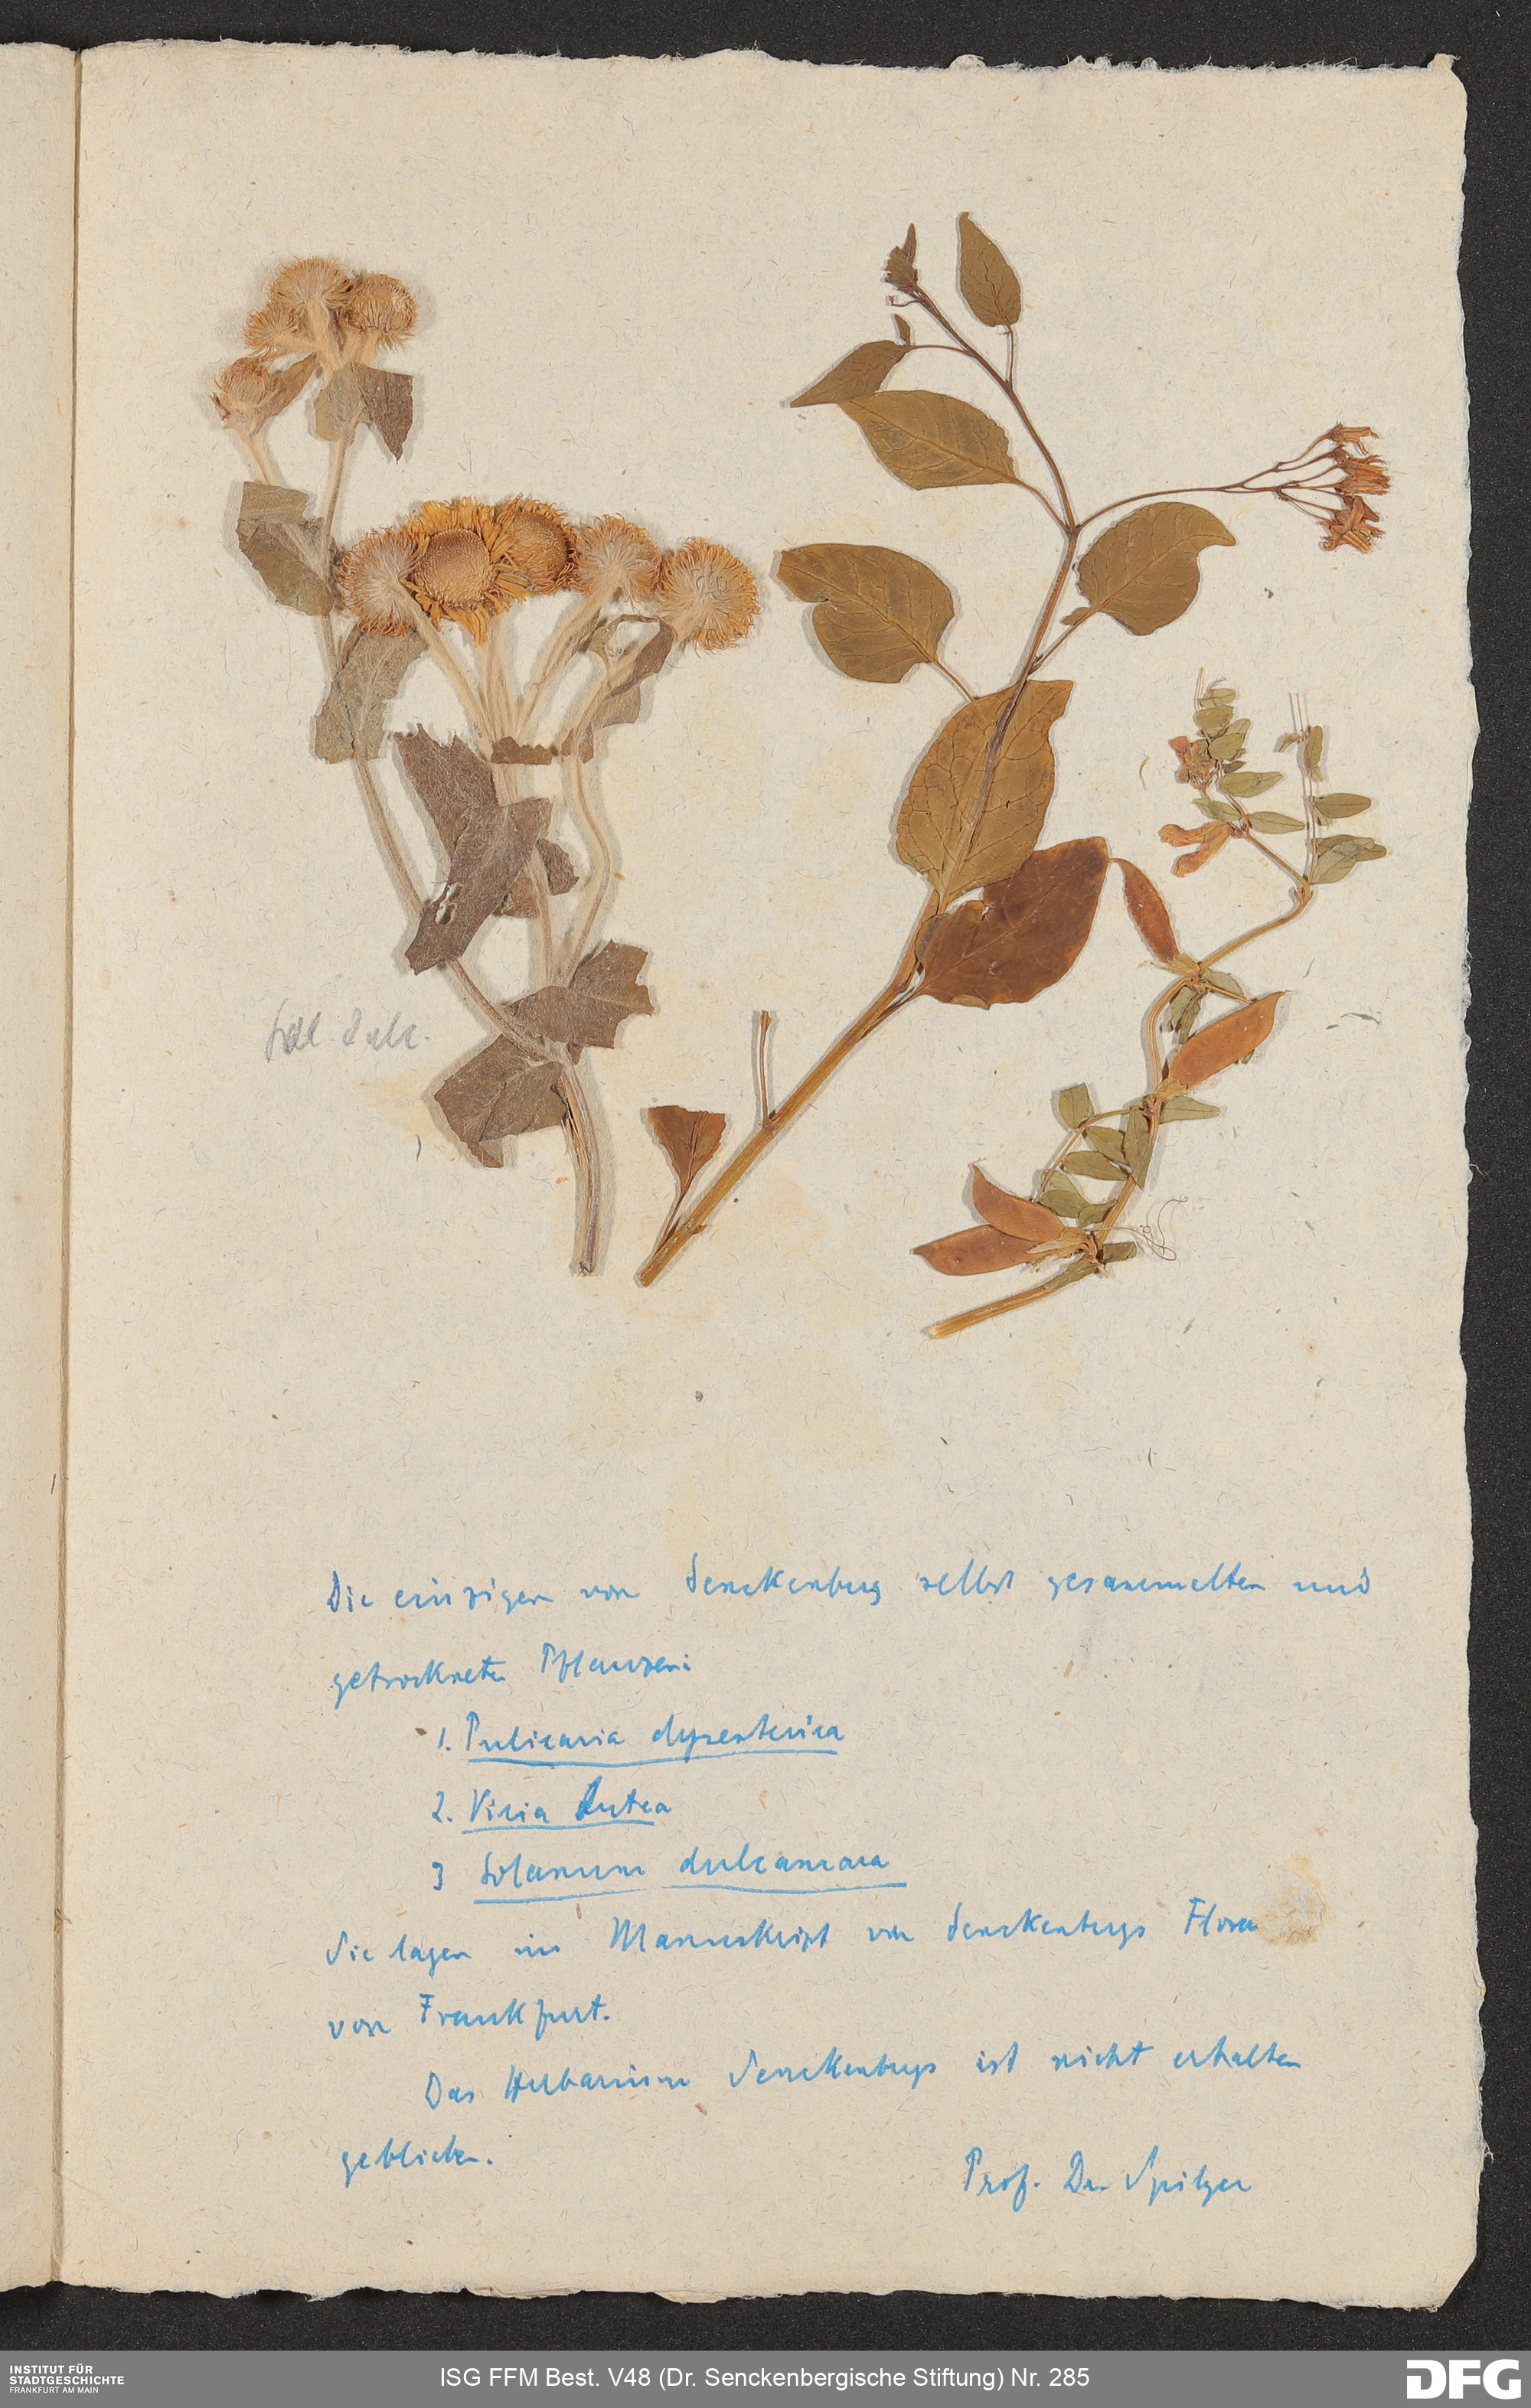 Sol Dulc.
Die einzigen von Senckenberg selbst gesammelten und
getrockneten Pflanzen:
1. Pulicaria dysenterica
2. Vicia lutea
3 Solanum dulcamara
Sie lagen im Manuskript von Senckenbergs Flora
von Frankfurt.
Das Herbarium Senckenbergs ist nicht erhalten
geblieben.
Prof. Dr. Spilger
INSTITUT FÜR
STADTGESCHICHTE
FRANKFURT AM MAIN
ISG FFM Best. V48 (Dr. Senckenbergische Stiftung) Nr. 285
DFG